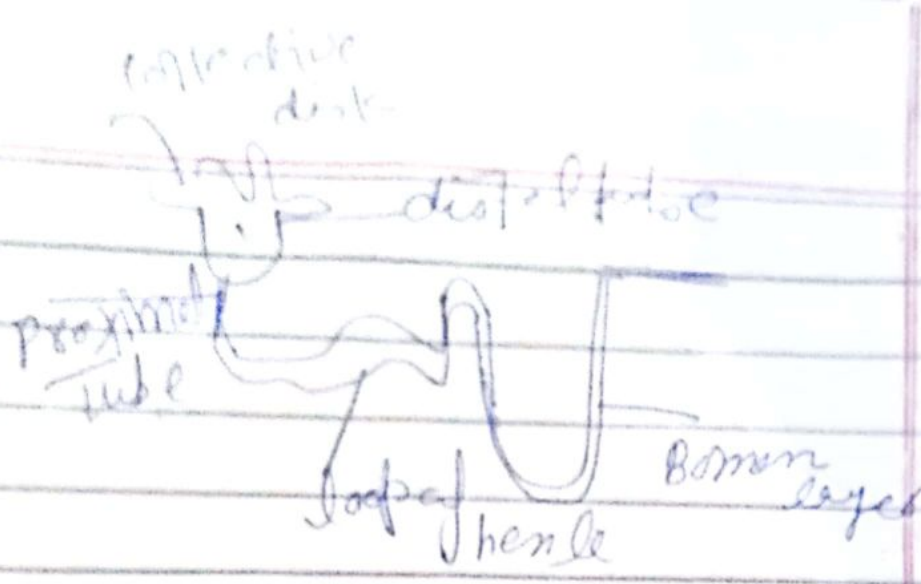 collective
dist
distal tube
proximal
tube
loop of
henle
Bomen
layer